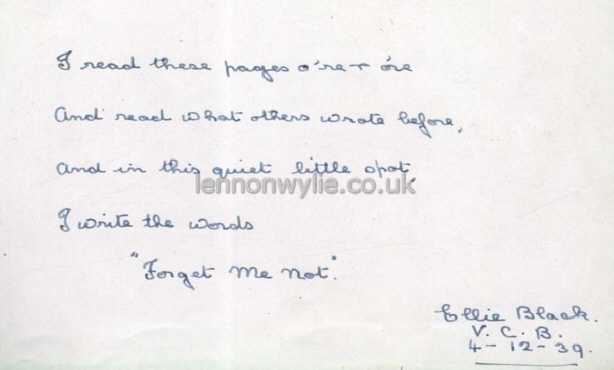 I read these pages o're + o're
And read what others wrote before,
And in this quiet little spot,
lennonwylie.co.uk
I write the words
"Forget Me Not".
Ellie Black.
V. C. B.
4-12-39.